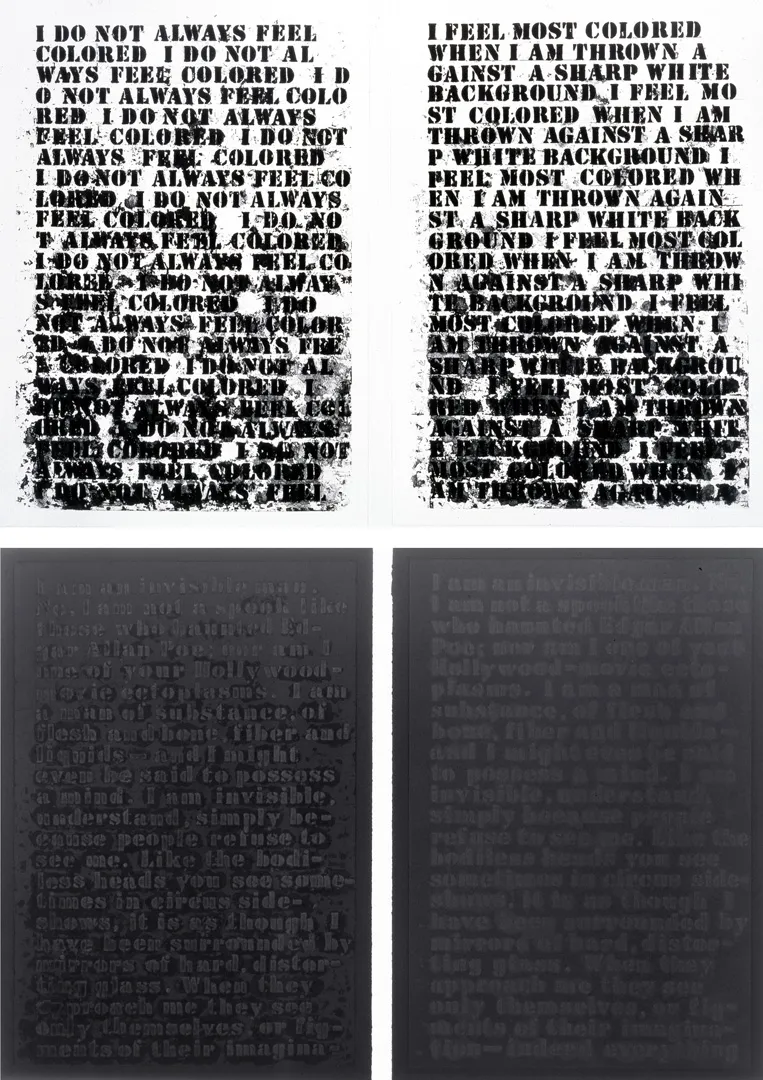 I DO NOT ALWAYS FEEL
COLORED I DO NOT AL
WAYS FEEL COLORED I D
O NOT ALWAYS FEEL COLO
RED I DO NOT ALWAYS
FEEL COLORED I DO NOT
ALWAYS FEEL COLORED
I DO NOT ALWAYS FEEL CO
LORED I DO NOT ALWAYS
FEEL COLORED I DO NO
T ALWAYS FEEL COLORED
I DO NOT ALWAYS FEEL CO
LORED I DO NOT ALWAY
S FEEL COLORED I DO
NOT ALWAYS FEEL COLOR
ED I DO NOT ALWAYS FEE
L COLORED I DO NOT AL
WAYS FEEL COLORED I
DO NOT ALWAYS FEEL COL
ORED I DO NOT ALWAYS
FEEL COLORED I DO NOT
ALWAYS FEEL COLORED
I DO NOT ALWAYS FEEL
I FEEL MOST COLORED
WHEN I AM THROWN A
GAINST A SHARP WHITE
BACKGROUND I FEEL MO
ST COLORED WHEN I AM
THROWN AGAINST A SHAR
P WHITE BACKGROUND I
FEEL MOST COLORED WH
EN I AM THROWN AGAIN
ST A SHARP WHITE BACK
GROUND I FEEL MOST COL
ORED WHEN I AM THROW
N AGAINST A SHARP WHI
TE BACKGROUND I FEEL
MOST COLORED WHEN I
AM THROWN AGAINST A
SHARP WHITE BACKGROU
ND I FEEL MOST COLO
RED WHEN I AM THROWN
AGAINST A SHARP WHIT
E BACKGROUND I FEEL
MOST COLORED WHEN I
AM THROWN AGAINST A
I am an invisible man.
No, I am not a spook like
those who haunted Ed-
gar Allan Poe; nor am I
one of your Hollywood-
movie ectoplasms. I am
a man of substance, of
flesh and bone, fiber and
liquids—and I might
even be said to possess
a mind. I am invisible,
understand, simply be-
cause people refuse to
see me. Like the bodi-
less heads you see some-
times in circus side-
shows, it is as though I
have been surrounded by
mirrors of hard, distor-
ting glass. When they
approach me they see
only themselves, or fig-
ments of their imagina-
I am an invisible man. No,
I am not a spook like those
who haunted Edgar Allan
Poe; nor am I one of your
Hollywood-movie ecto-
plasms. I am a man of
substance, of flesh and
bone, fiber and liquids—
and I might even be said
to possess a mind. I am
invisible, understand,
simply because people
refuse to see me. Like the
bodiless heads you see
sometimes in circus side-
shows, it is as though I
have been surrounded by
mirrors of hard, distor-
ting glass. When they
approach me they see
only themselves, or fig-
ments of their imagina-
tion—indeed, everything